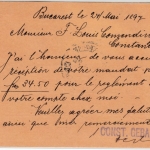 Bucarest le 24 Mai 1897
Monsieur F. Louis Comzandir
Constantz
J'ai l'honneur de vous accu
réception de votre mandat p
frs 34.50 pour le règlement
votre compte chez moi.
Veuillez agréer mes salut
ainsi que mes remerciement
CONST. GEBA